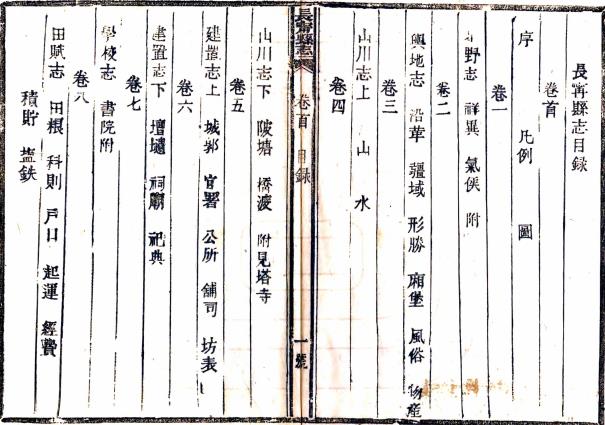 長甯縣志目録
卷首
序 凡例 圖
卷一
星野志 祥異 氣候 附
卷二
輿地志 沿革 疆域 形勝 廂堡 風俗 物產
卷三
山川志上 山 水
卷四
長甯縣志 卷首 目録 一
山川志下 陂塘 橋渡 附見塔寺
卷五
建置志上 城郭 官署 公所 舖司 坊表
卷六
建置志下 壇壝 祠廟 祀典
卷七
學校志 書院附
卷八
田賦志 田根 科則 戶口 起運 經費
積貯 盐鉄